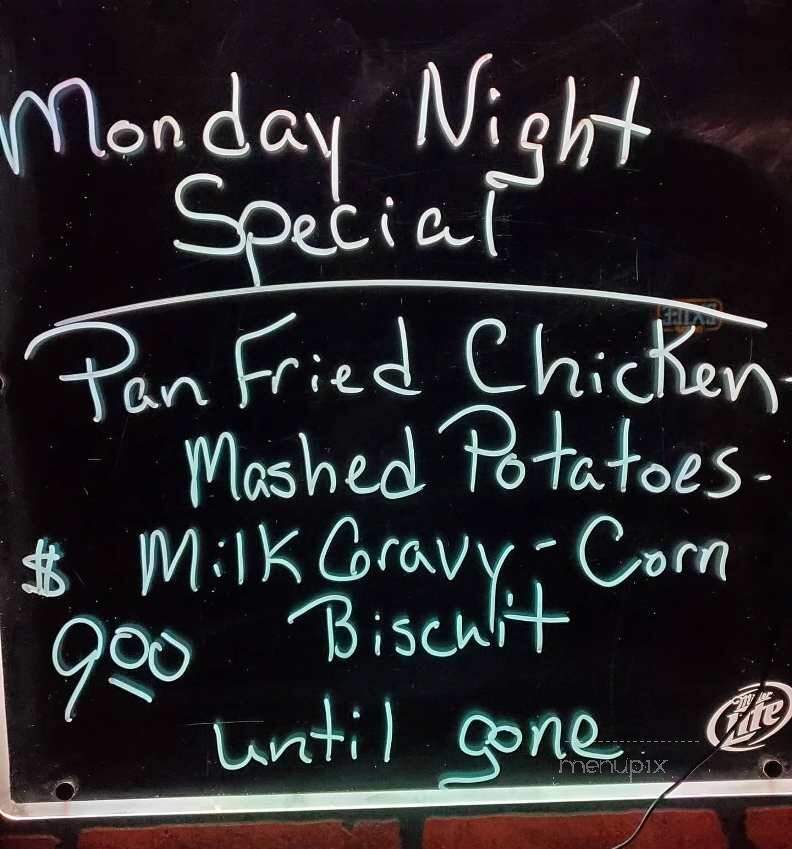 Monday Night
Special
Pan Fried Chicken-
Mashed Potatoes-
Milk Gravy - Corn
Biscuit
$
9.00
until gone
Miller
Lite
menupix